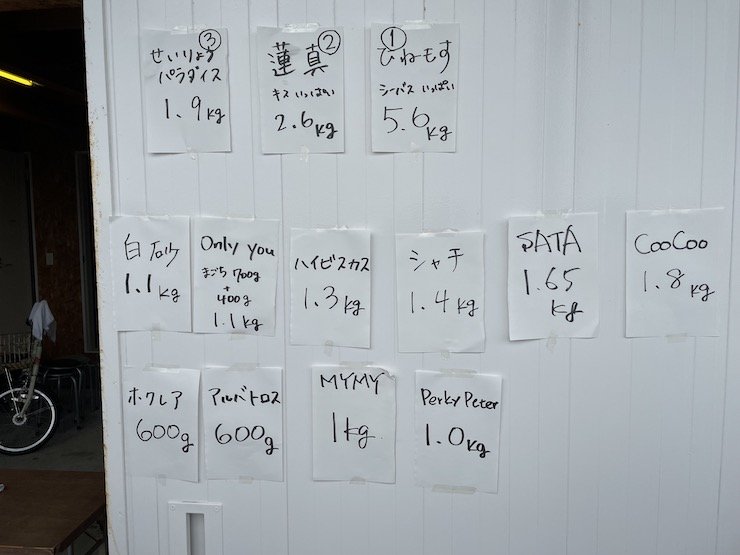 ③
せいりょう
パラダイス
1.9kg
②
蓮真
キス いっぱい
2.6kg
①
ひねもす
シーバス いっぱい
5.6kg
白砂
1.1kg
Only you
まごち 700g
+
400g
1.1kg
ハイビスカス
1.3kg
シャチ
1.4kg
SATA
1.65
kg
CooCoo
1.8kg
ホクレア
600g
アルバトロス
600g
MYMY
1kg
Perky Peter
1.0kg